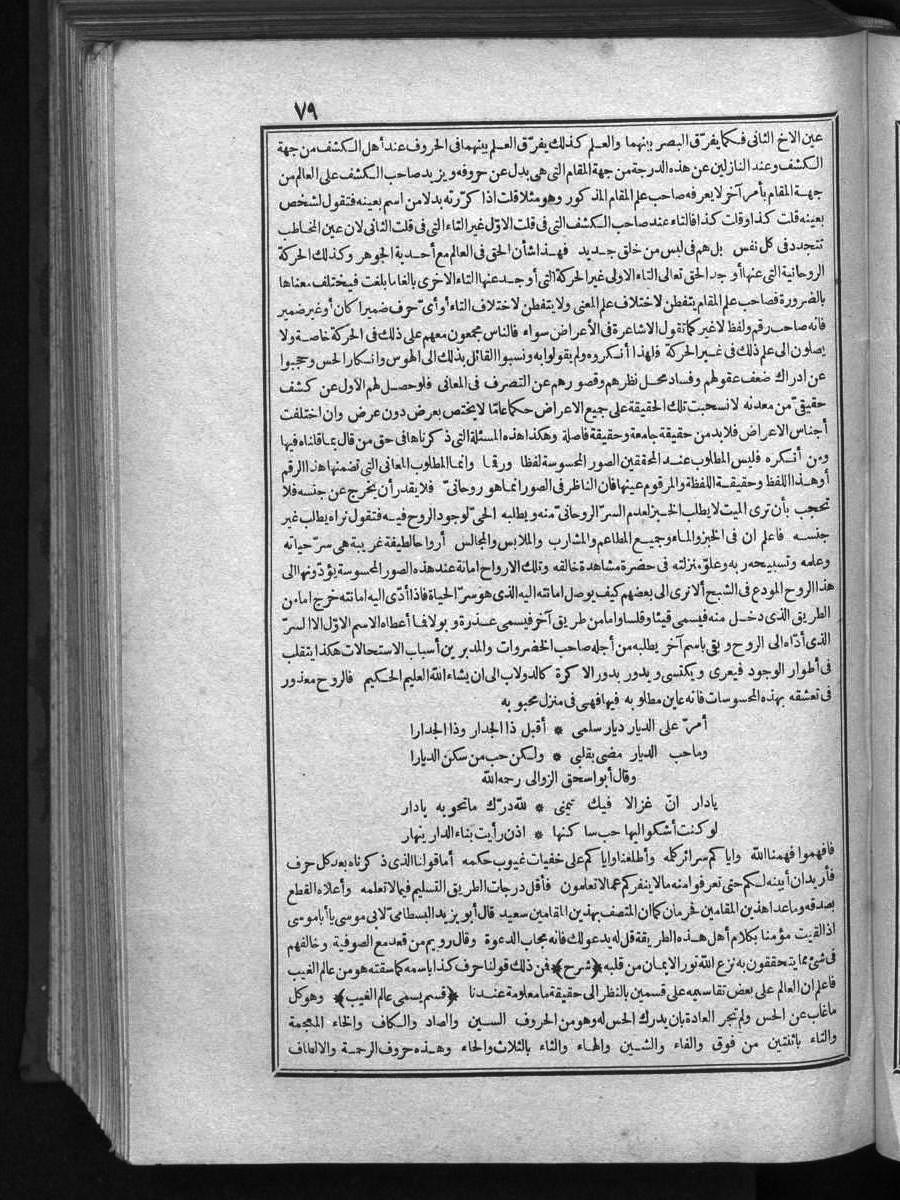 ٧٩
عين الاخ الثانى فكما يفرّق البصر بينهما والعلم كذلك يفرّق العلم بينهما فى الحروف عند أهل الكشف من جهة
الكشف وعند النازلين عن هذه الدرجة من جهة المقام التى هى بدل عن حروفه ويزيد صاحب الكشف على العالم من
جهة المقام بأمر آخر لا يعرفه صاحب علم المقام المذكور وهو مثلا قلت اذا كرّرته بدلا من اسم بعينه فتقول لشخص
بعينه قلت كذا وقلت كذا فالتاء عند صاحب الكشف التى فى قلت الاوّل غير التاء التى فى قلت الثانى لان عين المخاطب
تتجدد فى كل نفس بل هم فى لبس من خلق جديد فهذا شأن الحق فى العالم مع أحدية الجوهر وكذلك الحركة
الروحانية التى عنها أوجد الحق تعالى التاء الاولى غير الحركة التى أوجد عنها التاء الاخرى بالغا ما بلغت فيختلف معناها
بالضرورة فصاحب علم المقام يتفطن لاختلاف علم المعنى ولا يتفطن لاختلاف التاء أو أىّ حرف ضميرا كان أو غير ضمير
فانه صاحب رقم ولفظ لا غير كما تقول الاشاعرة فى الأعراض سواء فالناس مجمعون معهم على ذلك فى الحركة خاصة ولا
يصلون الى علم ذلك فى غير الحركة فلهذا أنكروه ولم يقولوا به ونسبوا القائل بذلك الى الهوس وانكار الحس وحجبوا
عن ادراك ضعف عقولهم وفساد محل نظرهم وقصورهم عن التصرف فى المعانى فلو حصل لهم الاول عن كشف
حقيقىّ من معدنه لانسحبت تلك الحقيقة على جميع الاعراض حكما عاما لا يختص بعرض دون عرض وان اختلفت
أجناس الاعراض فلا بد من حقيقة جامعة وحقيقة فاصلة وهكذا هذه المسئلة التى ذكرناها فى حق من قال بما قلناه فيها
ومن أنكره فليس المطلوب عند المحققين الصور المحسوسة لفظا ورقما وانما المطلوب المعانى التى تضمنها هذا الرقم
أو هذا اللفظ وحقيقة اللفظة والمرقوم عينها فان الناظر فى الصور انما هو روحانىّ فلا يقدر أن يخرج عن جنسه فلا
تحجب بأن ترى الميت لا يطلب الخبز لعدم السرّ الروحانىّ منه ويطلبه الحىّ لوجود الروح فيه فتقول نراه يطلب غير
جنسه فاعلم ان فى الخبز والماء وجميع المطاعم والمشارب والملابس والمجالس أرواحا لطيفة غريبة هى سرّ حياته
وعلمه وتسبيحه ربه وعلوّ منزلته فى حضرة مشاهدة خالقه وتلك الارواح امانة عند هذه الصور المحسوسة يؤدّونها الى
هذا الروح المودع فى الشبح ألا ترى الى بعضهم كيف يوصل امانته اليه الذى هو سرّ الحياة فاذا أدّى اليه امانته خرج اما من
الطريق الذى دخل منه فيسمى قيئا وقلسا واما من طريق آخر فيسمى عذرة وبولا فما أعطاه الاسم الاوّل الا السرّ
الذى أدّاه الى الروح وبقى باسم آخر يطلبه من أجله صاحب الخضروات والمدبرين أسباب الاستحالات هكذا يتقلب
فى أطوار الوجود فيعرى ويكتسى ويدور بدور الاكرة كالدولاب الى ان يشاء الله العليم الحكيم فالروح معذور
فى تعشقه بهذه المحسوسات فانه عاين مطلوبه فيها فهى فى منزل محبوبه
أمرّ على الديار ديار سلمى * أقبل ذا الجدار وذا الجدارا
وما حب الديار مضى بقلبى * ولكن حب من سكن الديارا
وقال أبو اسحق الزوالى رحمه الله
يا دار انّ غزالا فيك تيمنى * لله درّك ما تحويه يا دار
لو كنت أشكو اليها حب ساكنها * اذن رأيت بناء الدار ينهار
فافهموا فهمنا الله واياكم سرائر كلمه وأطلعنا واياكم على خفيات غيوب حكمه أما قولنا الذى ذكرناه بعد كل حرف
فأريد ان أبينه لكم حتى تعرفوا منه ما لا ينفركم عما لا تعلمون فأقل درجات الطريق التسليم فيما لا تعلمه وأعلاه القطع
بصدقه وما عدا هذين المقامين فحرمان كما ان المتصف بهذين المقامين سعيد قال أبو يزيد البسطامىّ لابى موسى يا أبا موسى
اذا لقيت مؤمنا بكلام أهل هذه الطريقة قل له يدعو لك فانه مجاب الدعوة وقال رويم من قعد مع الصوفية وخالفهم
فى شئ مما يتحققون به نزع الله نور الايمان من قلبه ﴿شرح﴾ فمن ذلك قولنا حرف كذا باسمه كما سقته هو من عالم الغيب
فاعلم ان العالم على بعض تقاسيمه على قسمين بالنظر الى حقيقة ما معلومة عندنا ﴿قسم يسمى عالم الغيب﴾ وهو كل
ما غاب عن الحس ولم تجر العادة بان يدرك الحس له وهو من الحروف السين والصاد والكاف والخاء المعجمة
والتاء باثنتين من فوق والفاء والشين والهاء والثاء بالثلاث والحاء وهذه حروف الرحمة والالطاف